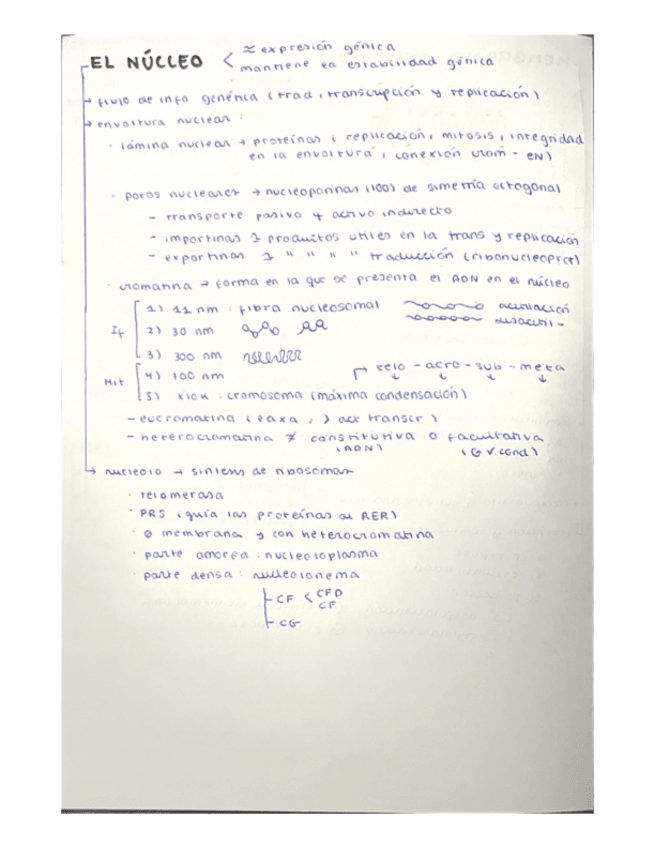 EL NÚCLEO < ≈ expresión génica
mantiene la estabilidad génica
→ flujo de info genética (trad, transcripción y replicación)
→ envoltura nuclear:
· lámina nuclear → proteínas (replicación, mitosis, integridad
en la envoltura, conexión crom - EN)
· poros nucleares → nucleoporinas (100) de simetría octogonal
- transporte pasivo y activo indirecto
- importinas } productos utiles en la trans y replicación
- exportinas } " " " " traducción (ribonucleoprot)
· cromatina → forma en la que se presenta el ADN en el núcleo
If
1) 11 nm : fibra nucleosomal
acetilación
2) 30 nm
desacetil -
3) 300 nm
Mit
4) 700 nm
→ telo - acro - sub - meta
5) : cromosoma (máxima condensación)
- eucromatina (laxa, > act transcr)
- heterocromatina ≠ constitutiva o facultativa
(ADN)
→ nucleolo → sintesis de ribosomas
· telomerasa
· PRS (guía las proteínas al RER)
· Ø membrana y con heterocromatina
· parte amorfa : nucleoloplasma
· parte densa : nucleolonema
- CF < CFD
CF
- CG